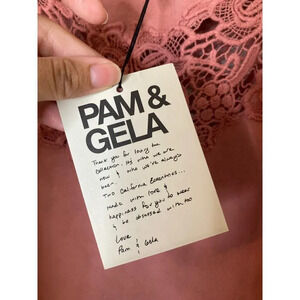 PAM &
GELA
Thank you for loving the
collection. It's who we are
now & who we've always
been.
Two California Beauties...
made with love &
happiness for you to wear
& be obsessed with too
Love
Pam & Gela